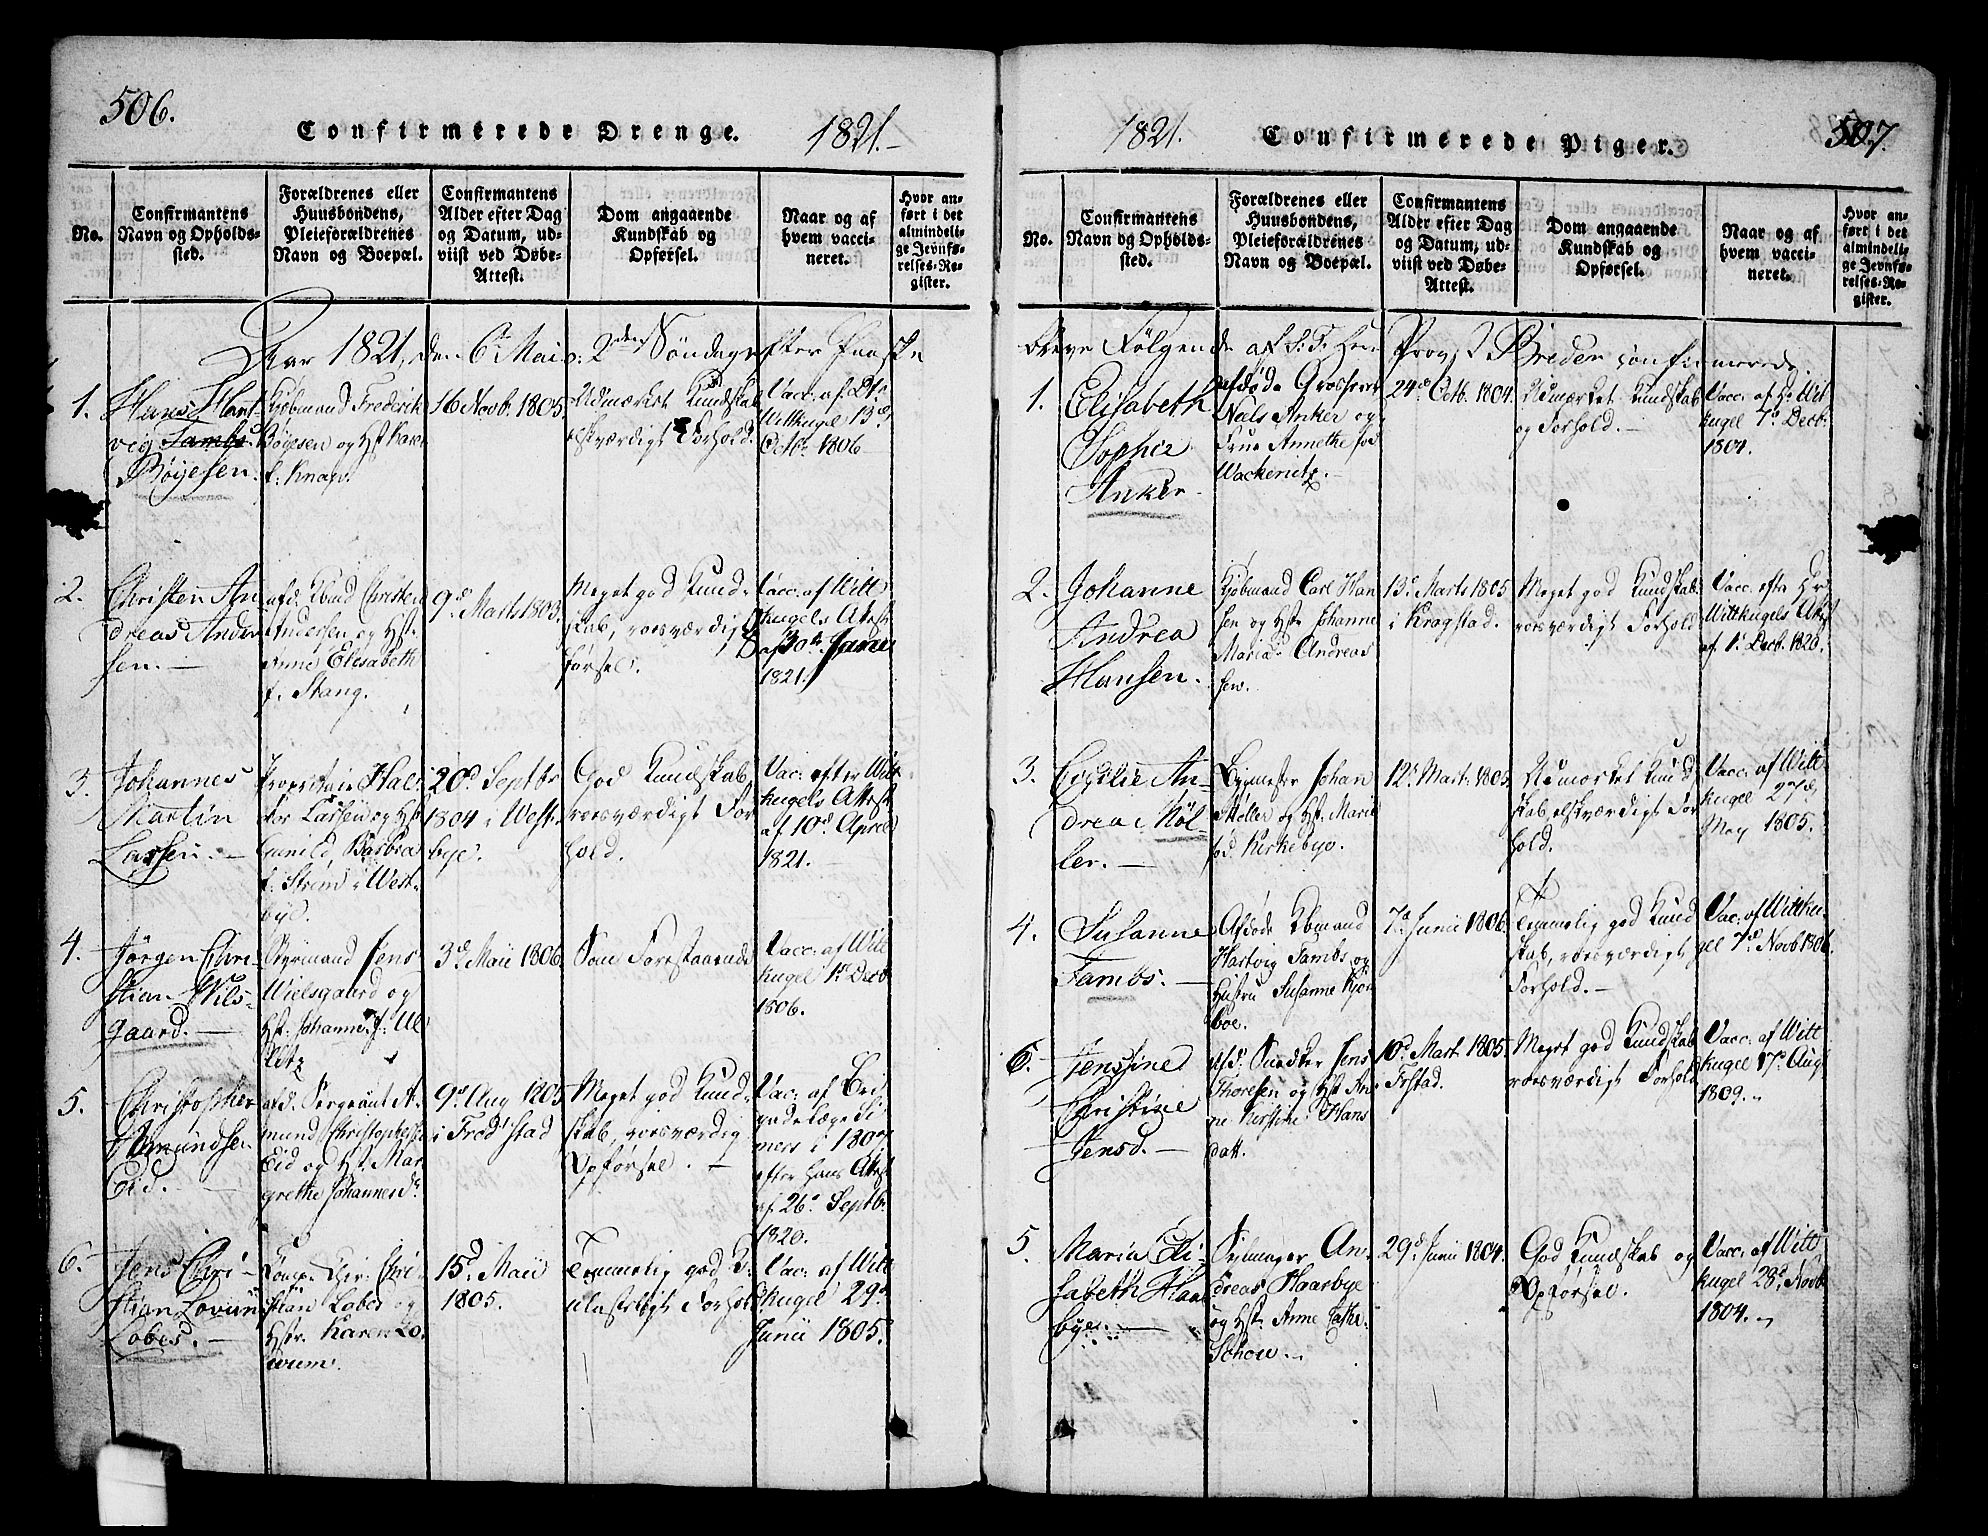 506.
Confirmerede Drenge.
1821.-
No.
Confirmantens
Navn og Opholds-
sted.
Forældrenes eller
Huusbondens,
Pleieforældrenes
Navn og Boepæl.
Confirmantens
Alder efter Dag
og Datum, ud-
viist ved Døbe-
Attest.
Dom angaaende
Kundskab og
Opførsel.
Naar og af
hvem vacci-
neret.
Hvor an-
ført i det
almindeli-
ge Jevnfø-
relses-Re-
gister.
Aar 1821, den 6te Mai o: 2den Søndag efter Paaske
1.
Hans Hart-
vig Tambs
Bøyesen.
Kjøbmand Frederik
Bøyesen og Hst. Karen
f. Knap.
16 Novb. 1805
Udmærket Kundskab
elskværdigt Forhold.
Vac. af Dr.
Wittkugel 13d
Octb. 1806
2.
Christen An
dreas Ander
sen. -
afd. Kbmd Christen
Andersen og Hst.
Anne Elisabeth
f. Stang.
9d. Marts 1803.
Meget god Kund-
skab, roesværdig Op
førsel.
Vacc. af Witt
kugels Attest
af 30te Janu
1821.
3.
Johannes
Martin
Lassen. -
Proprietair Hal
vor Lassen og Hst
Gunild Barbra
f. Strøm i West-
bye.
20d Septbr
1804 i West-
bye.
God Kundskab,
roesværdigt For
hold.
Vac: efter Witt
kugels Attest
af 10d April
1821.
4.
Jørgen Chri-
stian Wils-
gaard. -
Styrmand Jens
Wielsgaard og
Hst. Johanne f: Ul
ritz
3d. Maii 1806.
Som Forestaaende
Vacc: af Witt
kugel 1d Decb
1806.
5.
Christopher
Amundsen
Eid. -
afd. Sergeant A-
mund Christophers
Eid og Hst. Mar
grethe Johannesd
9d Aug 1803
i Fredrstad
Meget god Kund-
skab, roesværdig
Opførsel. -
Vac: af Bri
gadelæge Si
mers i 1807
efter hans Attest
af 26d Septb.
1820.
6.
Jens Chri-
stian Lovum
Lobes. -
Comp. Chir. Chri-
stian Lobes og
Hstr. Karen Lo-
vum.
15d. Maii
1805.
Temmelig god K.
ulasteligt Forhold
Vac: af Witt
kugel 29d
Junii 1805.
507.
1821.
Confirmerede Piger.
No.
Confirmantens
Navn og Opholds-
sted.
Forældrenes eller
Huusbondens,
Pleieforældrenes
Navn og Boepæl.
Confirmantens
Alder efter Dag
og Datum, ud-
viist ved Døbe-
Attest.
Dom angaaende
Kundskab og
Opførsel.
Naar og af
hvem vacci-
neret.
Hvor an-
ført i det
almindeli-
ge Jevnfø-
relses-Re-
gister.
bleve Følgende af S: T: Herr Provst Breder confirmerede.
1.
Elisabeth
Sophie
Anker.
afdøde Grosserer
Niels Anker og
Frue Annethe fød
Wackenitz. -
24d Octb. 1804.
Udmærket Kundskab
og Forhold. -
Vacc: af Hr. Wit
kugel 7d Decb.
1804.
2.
Johanne
Andrea
Hansen.
Kjøbmand Carl Han
sen og Hstr. Johanne
Maria Andreas
sen.
13d. Marts 1805
i Kragstad.
Meget god Kundskab
roesværdigt Forhold
Vacc. efter Hr
Wittkugels Attest
af 1d. Decb. 1820.
3.
Cecilie An
drea Møl
ler. -
Byemester Johan
Møller og Hst. Marie
fød. Kirkebye.
12d. Mart. 1805
Udmærket Kund
skab, elskværdigt For
hold.
Vacc. af Witt
kugel 27d,
May 1805.
4.
Susanne
Tambs. -
Afdøde Kbmand
Hartvig Tambs og
Hustru Susanne Kjør
boe.
7d Junii 1806.
Temmelig god Kund
skab, roesværdigt
Forhold. -
Vac. af Wittku-
gel 7d Novb 1806.
6.
Jensine
Christine
Jensd. -
afd. Jens
Thoresen og Hst An-
ne Kirstine Hans
datt.
10d Mart. 1805.
Meget god Kundskab
roesværdigt Forhold
Vacc. af Witt
kugel 17d Aug
1809.
5.
Maria Eli-
sabeth Haar
bye. -
Seilmager An-
dreas Haarbye
og Hst. Anne Cathr.
Schou. -
29d. Junii 1804.
God Kundskab og
Opførsel.
Vacc. af Witt-
kugel 28d Novb
1804.